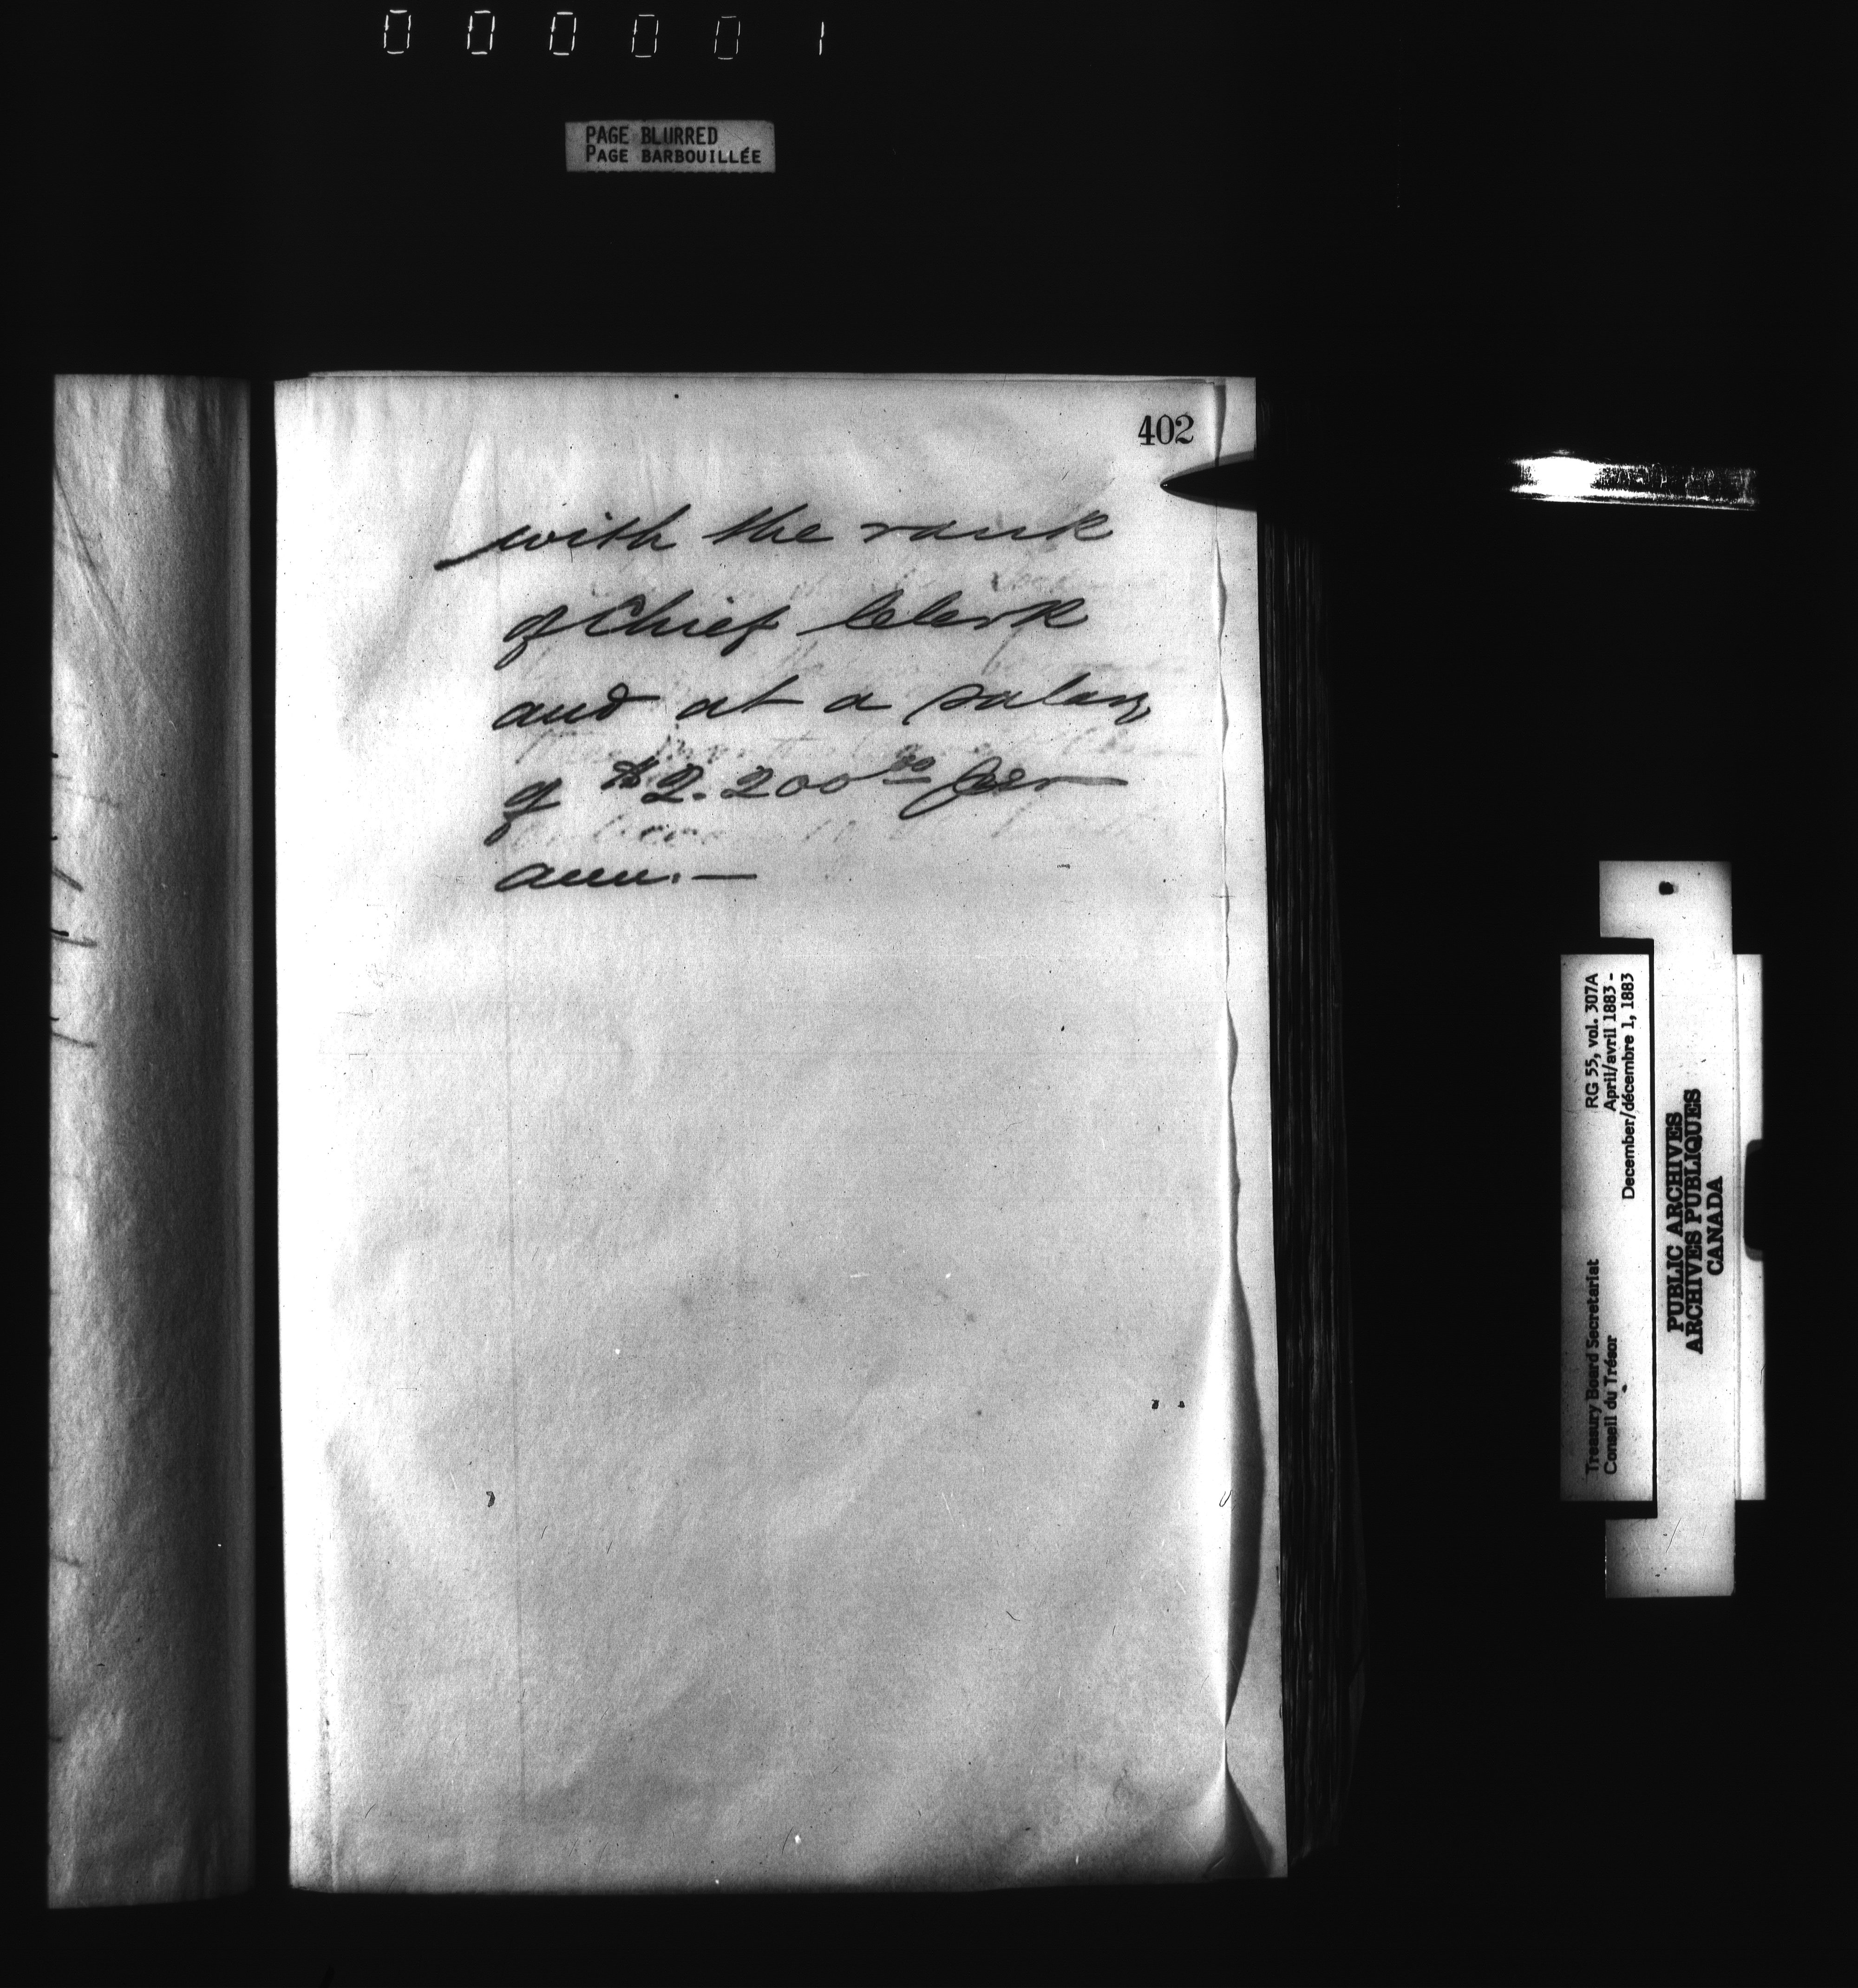 000001
PAGE BLURRED
PAGE BARBOUILLÉE
402
with the rank
of Chief Clerk
and at a salary
of $2.200 00 per
ann. —
Treasury Board Secretariat
Conseil du Trésor
RG 55, vol. 307A
April/avril 1883 -
December/décembre 1, 1883
PUBLIC ARCHIVES
ARCHIVES PUBLIQUES
CANADA